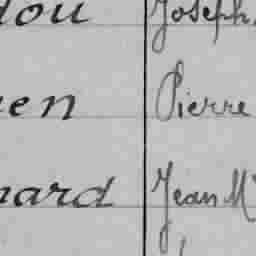 dou Joseph,
en Pierre
nard Jean M